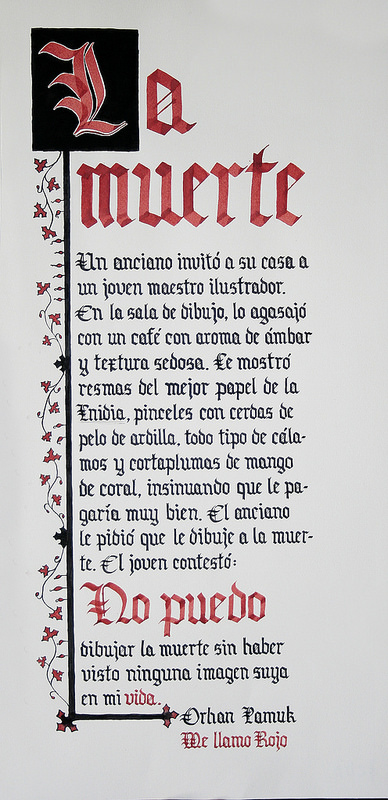 La
muerte
Un anciano invitó a su casa a
un joven maestro ilustrador.
En la sala de dibujo, lo agasajó
con un café con aroma de ámbar
y textura sedosa. Le mostró
resmas del mejor papel de la
Enidia, pinceles con cerdas de
pelo de ardilla, todo tipo de cála-
mos y cortaplumas de mango
de coral, insinuando que le pa-
garía muy bien. El anciano
le pidió que le dibuje a la muer-
te. El joven contestó:
No puedo
dibujar la muerte sin haber
visto ninguna imagen suya
en mi vida.
Orhan Pamuk
Me llamo Rojo